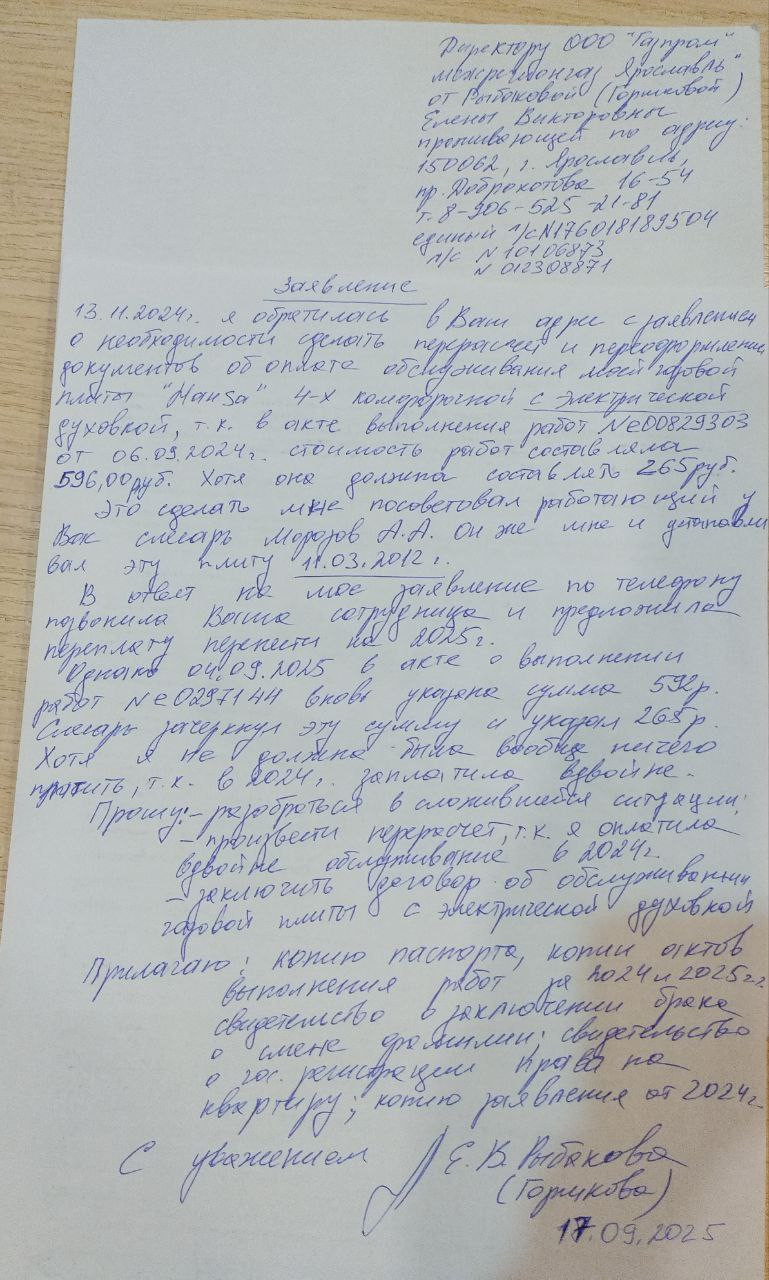 Директору ООО "Газпром
межрегионгаз Ярославль"
от Рыбаковой (Горшковой)
Елены Викторовны
проживающей по адресу:
150062, г. Ярославль,
пр. Доброхотова 16-54
т. 8-906-525-21-81
единый л/с N176018189504
л/с N 10106873
N 012308871
Заявление
13.11.2024г. я обратилась в Ваш адрес с заявлением
о необходимости сделать перерасчет и переоформлении
документов об оплате обслуживания моей газовой
плиты "Hansa" 4-х комфорочной с электрической
духовкой, т.к. в акте выполнения работ №е00829303
от 06.09.2024г. стоимость работ составляла
596,00руб. Хотя она должна составлять 265руб.
Это сделать мне посоветовал работающий у
Вас слесарь Морозов А.А. Он же мне и устанавли
вал эту плиту 11.03.2012г.
В ответ на мое заявление по телефону
позвонила Ваша сотрудница и предложила
переплату перенести на 2025г.
Однако 04.09.2025 в акте о выполнении
работ №е0297144 вновь указана сумма 592р.
Слесарь зачеркнул эту сумму и указал 265р.
Хотя я не должна была вообще ничего
платить, т.к. в 2024г. заплатила вдвойне.
Прошу: - разобраться в сложившейся ситуации;
- произвести перерасчет, т.к. я оплатила
вдвойне обслуживание в 2024г.
- заключить договор об обслуживании
газовой плиты с электрической духовкой
Прилагаю: копию паспорта, копии актов
выполнения работ за 2024 и 2025г.г.
свидетельство о заключении брака
о смене фамилии; свидетельство
о гос. регистрации права на
квартиру; копию заявления от 2024г
С уважением Е.В. Рыбакова
(Горшкова)
17.09.2025